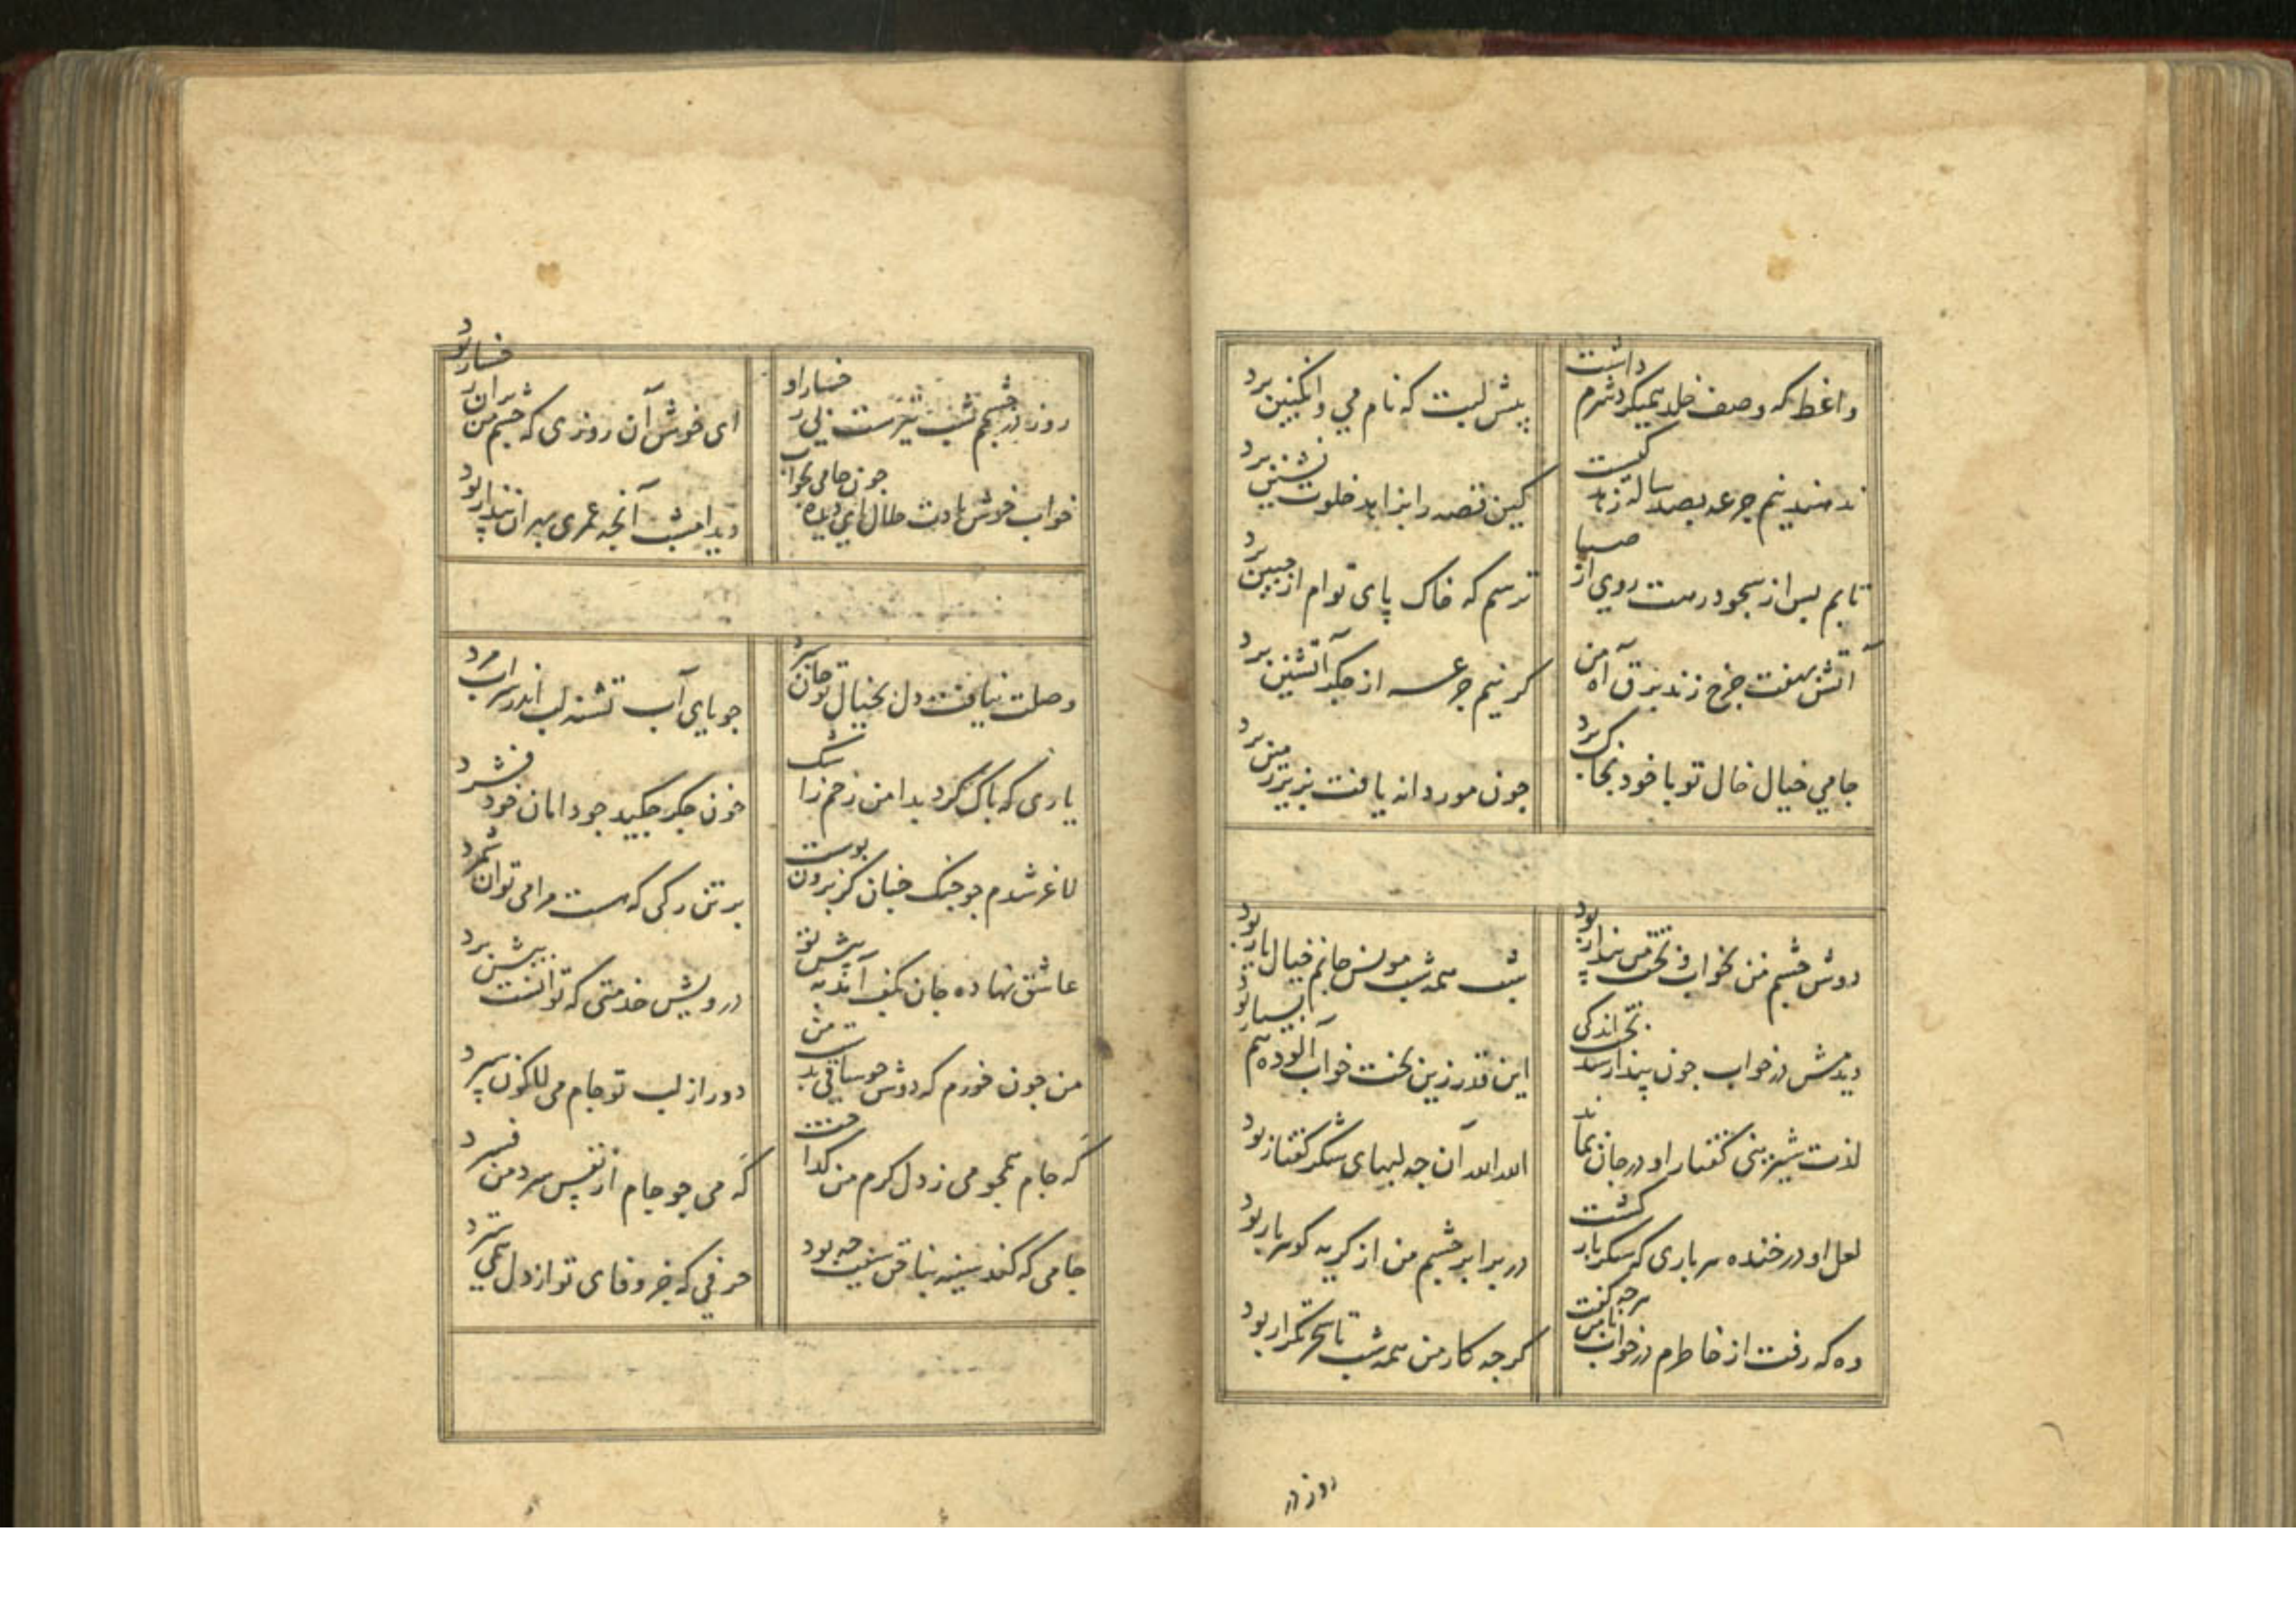 واعظ که وصف خلد همیکرد شرم داشت
پیش لبت که نام می و انکبین برد
ندهند نیم جرعه بصد ساله زهد کیست
کین قصه را بزاهد خلوت نشین برد
تابم پس از سجود رهت روی از صبا
ترسم که خاک پای توام از جبین برد
آتش بهفت چرخ زند برق آه من
کر نیم جرعه از جکر آتشین برد
جامی خیال خال تو با خود بخاک برد
چون مور دانه یافت بزیر زمین برد
دوش چشم من بخواب و بختم بیدار بود
شب همه شب مونس جانم خیال یار بود
دیدمش در خواب چون بیدار شد بخت اندکی
این قدر زین بخت خواب آلوده هم بسیار بود
لذت شیرینی کفتار او در جان بماند
الله الله آن چه لبهای شکر کفتار بود
لعل او در خنده هر باری که شکربار کشت
در برابر چشم من از کریه کوهربار بود
وه که رفت از خاطرم در خواب با من هرچه کفت
کرچه کار من همه شب تا سحر تکرار بود
روز در
روز در چشمم شب تیره ست بی رخسار او
ای خوش آن روزی که چشم من بر آن رخسار بود
خواب خوش بادت حلال ای دیده چون جامی بخواب
دید امشب آنچه عمری بهر آن بیدار بود
وصلت نیافت دل بخیال تو جان سپرد
جویای آب تشنه لب اندر سراب مرد
یاری که پاک کرد بدامن ز خم زاشک
خون جکر چکید چو دامان خود فشرد
لاغر شدم چو چنک چنان کز برون پوست
بر تن رکی که هست مرا می توان شمرد
عاشق نهاده جان بکف آمد به پیش تو
درویش خدمتی که توانست پیش برد
من چون خورم که دوش چو ساقی بدست من
دور از لب تو جام می لالکون سپرد
که جام همچو می ز دل کرم من کداخت
که می چو جام از نفس سرد من فسرد
جامی که کند سینه بناخن سبب چه بود
حرفی که جز وفای تو از دل همی سترد